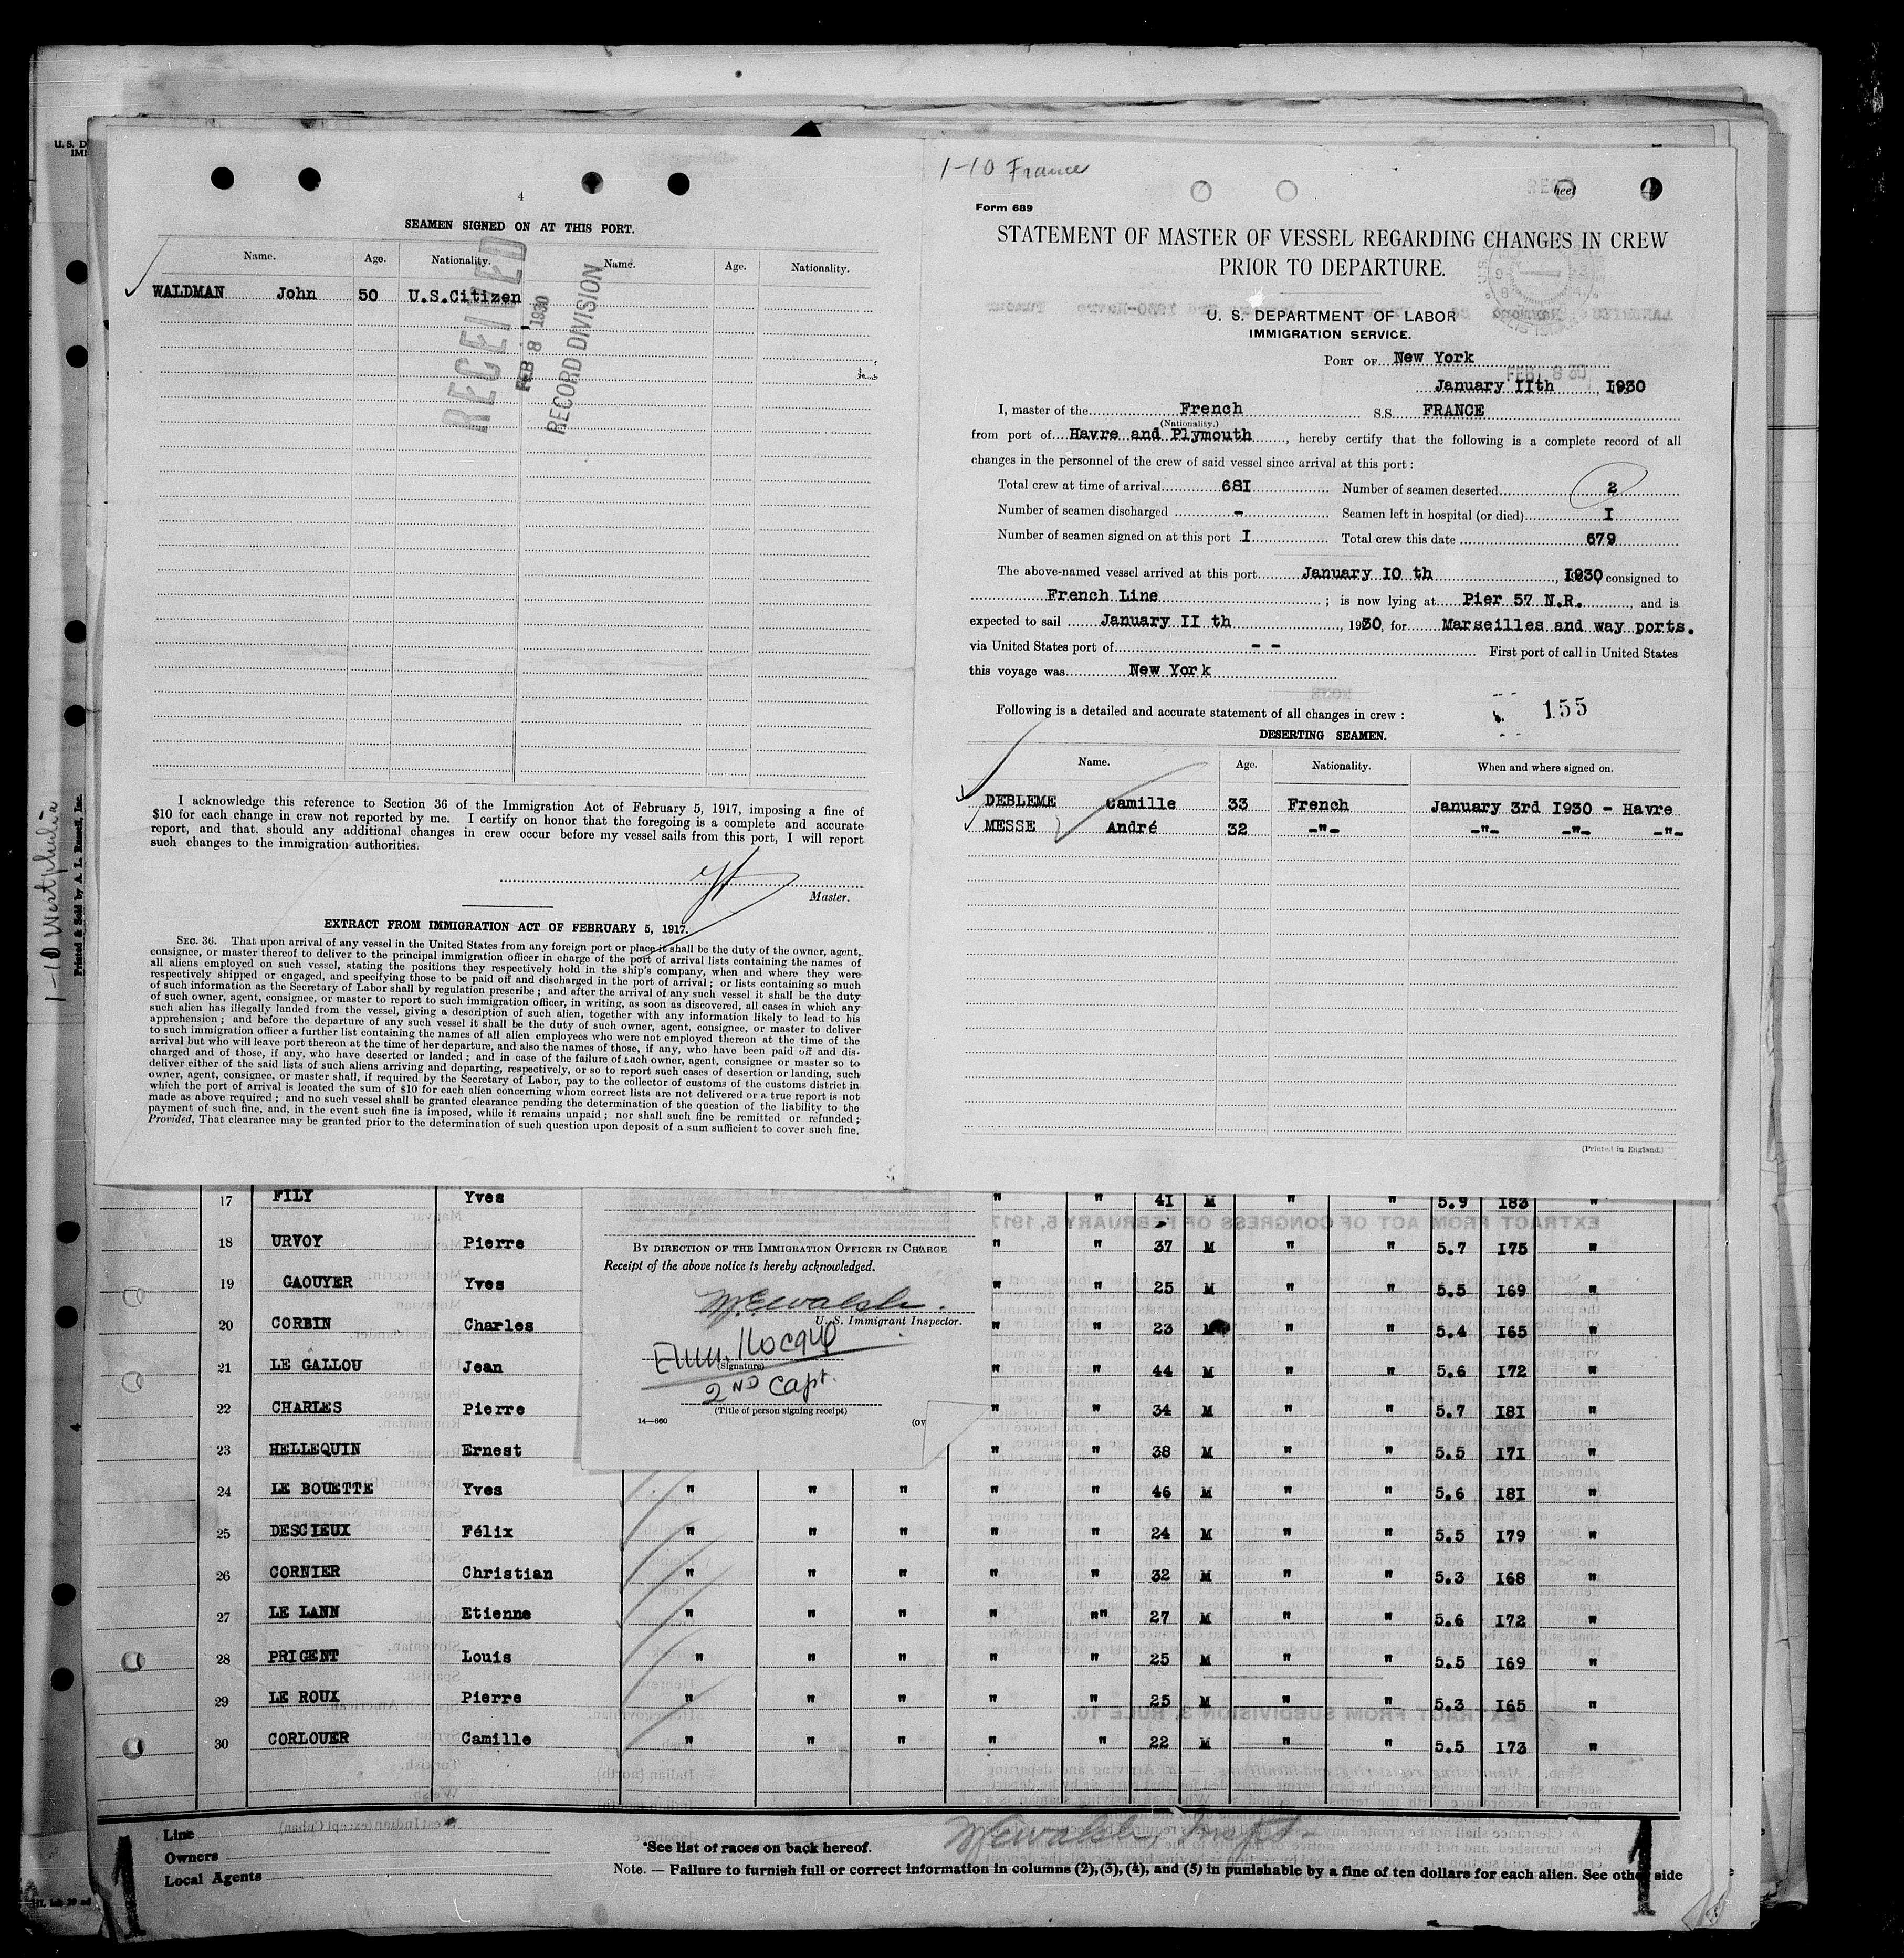 4
SEAMEN SIGNED ON AT THIS PORT.
Name. Age. Nationality. Name. Age. Nationality.
WALDMAN John 50 U.S.Citizen
RECEIVED
FEB 8 1930
RECORD DIVISION
I acknowledge this reference to Section 36 of the Immigration Act of February 5, 1917, imposing a fine of
$10 for each change in crew not reported by me. I certify on honor that the foregoing is a complete and accurate
report, and that should any additional changes in crew occur before my vessel sails from this port, I will report
such changes to the immigration authorities.
Master.
EXTRACT FROM IMMIGRATION ACT OF FEBRUARY 5, 1917.
SEC. 36. That upon arrival of any vessel in the United States from any foreign port or place it shall be the duty of the owner, agent,
consignee, or master thereof to deliver to the principal immigration officer in charge of the port of arrival lists containing the names of
all aliens employed on such vessel, stating the positions they respectively hold in the ship's company, when and where they were
respectively shipped or engaged, and specifying those to be paid off and discharged in the port of arrival; or lists containing so much
of such information as the Secretary of Labor shall by regulation prescribe; and after the arrival of any such vessel it shall be the duty
of such owner, agent, consignee, or master to report to such immigration officer, in writing, as soon as discovered, all cases in which any
such alien has illegally landed from the vessel, giving a description of such alien, together with any information likely to lead to his
apprehension; and before the departure of any such vessel it shall be the duty of such owner, agent, consignee, or master to deliver
to such immigration officer a further list containing the names of all alien employees who were not employed thereon at the time of the
arrival but who will leave port thereon at the time of her departure, and also the names of those, if any, who have been paid off and dis-
charged and of those, if any, who have deserted or landed; and in case of the failure of such owner, agent, consignee or master so to
deliver either of the said lists of such aliens arriving and departing, respectively, or so to report such cases of desertion or landing, such
owner, agent, consignee, or master shall, if required by the Secretary of Labor, pay to the collector of customs of the customs district in
which the port of arrival is located the sum of $10 for each alien concerning whom correct lists are not delivered or a true report is not
made as above required; and no such vessel shall be granted clearance pending the determination of the question of the liability to the
payment of such fine, and, in the event such fine is imposed, while it remains unpaid; nor shall such fine be remitted or refunded;
Provided, That clearance may be granted prior to the determination of such question upon deposit of a sum sufficient to cover such fine.
1-10 France
Form 689
STATEMENT OF MASTER OF VESSEL REGARDING CHANGES IN CREW
PRIOR TO DEPARTURE.
U. S. DEPARTMENT OF LABOR
IMMIGRATION SERVICE.
PORT OF New York
January IIth, I930
I, master of the French S.S. FRANCE
(Nationality.)
from port of Havre and Plymouth, hereby certify that the following is a complete record of all
changes in the personnel of the crew of said vessel since arrival at this port:
Total crew at time of arrival 68I Number of seamen deserted 2
Number of seamen discharged - Seamen left in hospital (or died) I
Number of seamen signed on at this port I Total crew this date 679
The above-named vessel arrived at this port January I0 th, I930, consigned to
French Line; is now lying at Pier 57 N.R., and is
expected to sail January II th, 1930, for Marseilles and way ports.
via United States port of - - First port of call in United States
this voyage was New York
155
Following is a detailed and accurate statement of all changes in crew:
DESERTING SEAMEN.
Name. Age. Nationality. When and where signed on.
DEBLEME Camille 33 French January 3rd I930 - Havre
MESSE André 32 -"- -"- -"- -"-
(Printed in England.)
1-10 Westphalia
Printed & Sold by A. L. Russell, Inc.
17 FILY Yves " " 4I M " " 5.9 I83 "
18 URVOY Pierre " " 37 M " " 5.7 I75 "
19 GAOUYER Yves " " 25 M " " 5.5 I69 "
20 CORBIN Charles " " 23 M " " 5.4 I65 "
21 LE GALLOU Jean " " 44 M " " 5.6 I72 "
22 CHARLES Pierre " " 34 M " " 5.7 I8I "
23 HELLEQUIN Ernest " " 38 M " " 5.5 I7I "
24 LE BOUETTE Yves " " " " " 46 M " " 5.6 I8I "
25 DESCIEUX Félix " " " " " 24 M " " 5.5 I79 "
26 CORNIER Christian " " " " " 32 M " " 5.3 I68 "
27 LE LANN Etienne " " " " "" 27 M " " 5.6 I72 "
28 PRIGENT Louis " " " " " 25 M " " 5.5 I69 "
29 LE ROUX Pierre " " " " " 25 M " " 5.3 I65 "
30 CORLOUER Camille " " " " " 22 M " " 5.5 I73 "
BY DIRECTION OF THE IMMIGRATION OFFICER IN CHARGE
Receipt of the above notice is hereby acknowledged.
U. S. Immigrant Inspector.
(Signature)
2ND Capt.
(Title of person signing receipt)
14—660
Line
Owners
Local Agents
*See list of races on back hereof.
Note. — Failure to furnish full or correct information in columns (2),(3),(4), and (5) in punishable by a fine of ten dollars for each alien. See other side